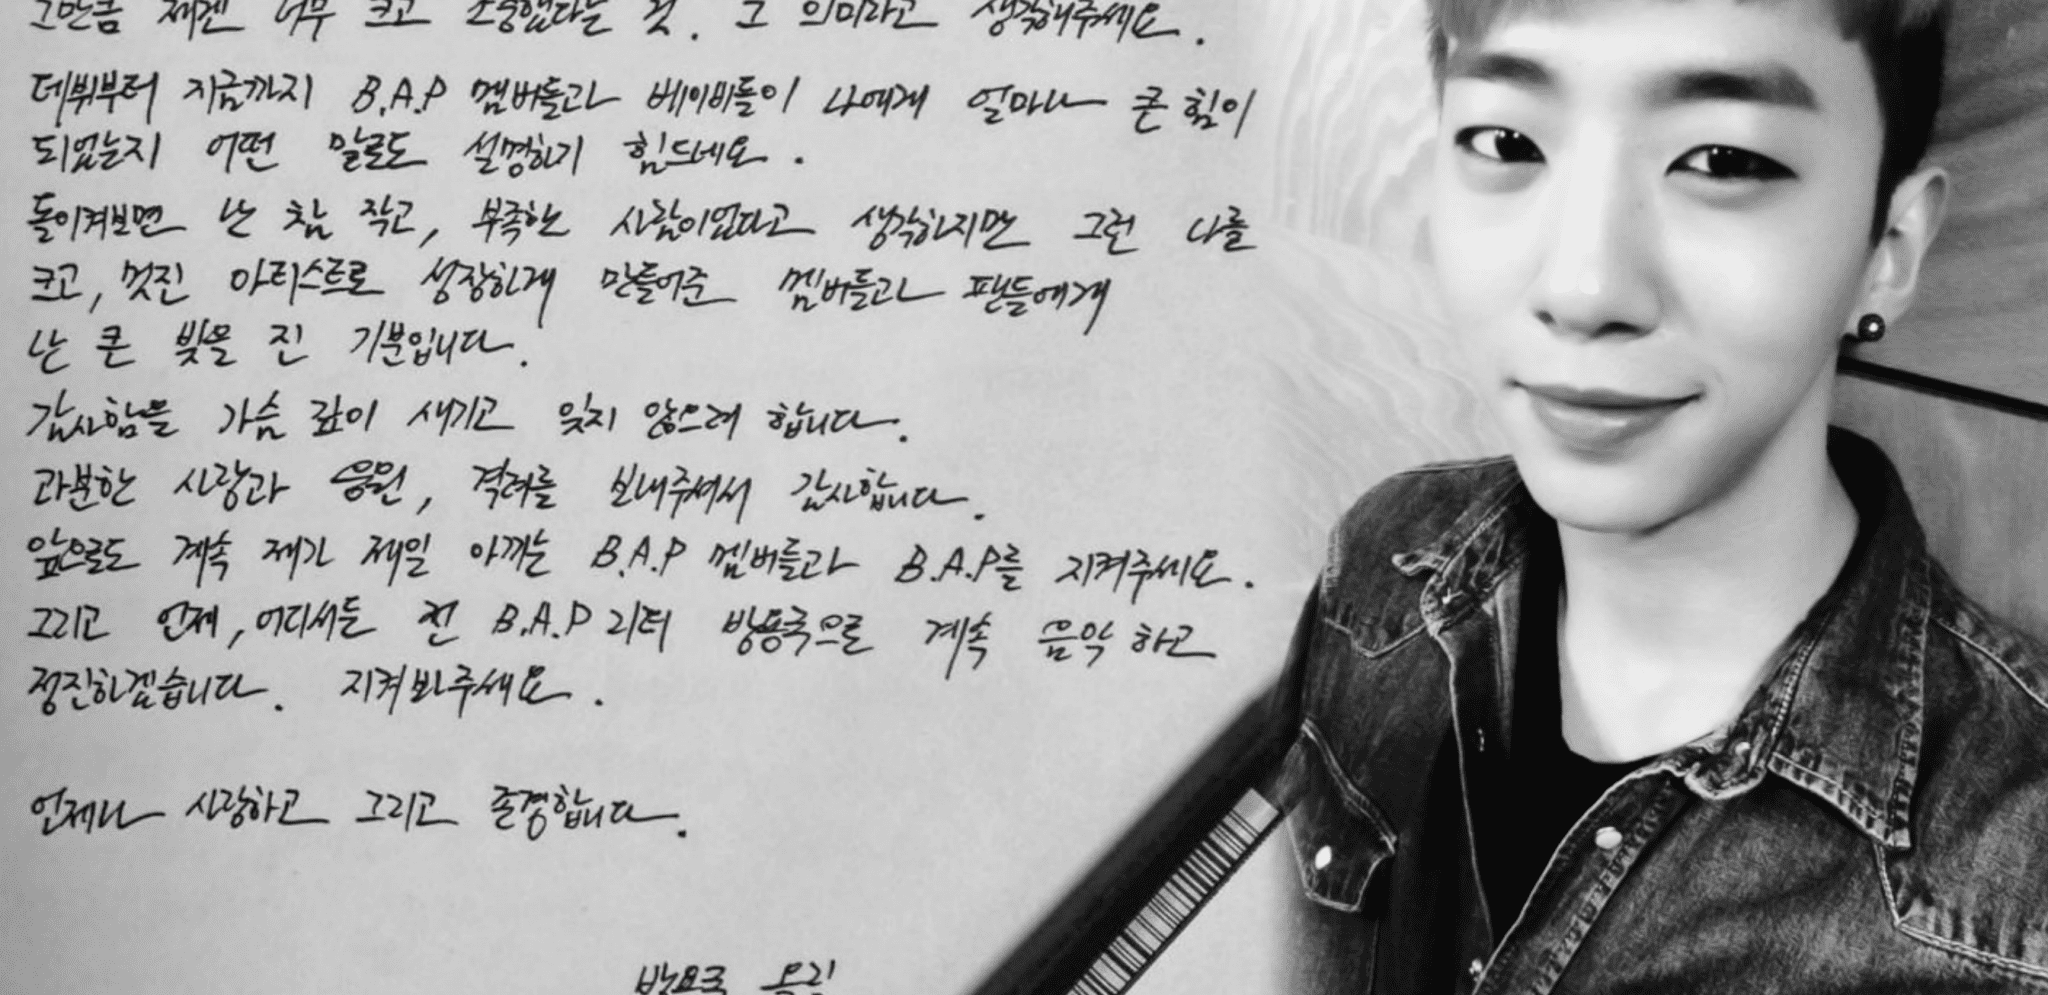 그만큼 제겐 너무 크고 소중했다는 것. 그 의미라고 생각해주세요.
데뷔부터 지금까지 B.A.P 멤버들과 베이비들이 나에게 얼마나 큰 힘이
되었는지 어떤 말로도 설명하기 힘드네요.
돌이켜보면 난 참 작고, 부족한 사람이었다고 생각하지만 그런 나를
크고, 멋진 아티스트로 성장하게 만들어준 멤버들과 팬들에게
난 큰 빚을 진 기분입니다.
감사함을 가슴 깊이 새기고 잊지 않으려 합니다.
과분한 사랑과 응원, 격려를 보내주셔서 감사합니다.
앞으로도 계속 제가 제일 아끼는 B.A.P 멤버들과 B.A.P를 지켜주세요.
그리고 언제, 어디서든 전 B.A.P 리더 방용국으로 계속 음악 하고
정진하겠습니다. 지켜봐주세요.
언제나 사랑하고 그리고 존경합니다.
방용국 올림